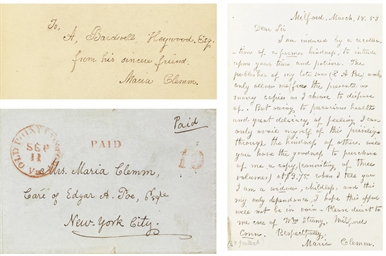 To,
A. Bardwell Heywood, Esq.
from his sincere friend.
Maria Clemm.
Paid
PAID
SEP
11
Mrs. Maria Clemm,
Care of Edgar A. Poe, Esqre
New-York City.
Milford, March, 18.
Dear Sir
I am induced by a recollec
tion of a former kindness, to intrude
upon your time and patience. The
publisher of my lost one (E A Poe) will
only allow me from the proceeds as
many copies as I choose to dispose
of. But owing to precarious health
and great delicacy of feeling I can
only avail myself of this privilege
through the kindness of others. Will
you have the goodness to purchase
of me a copy, consisting of three
volumes, at $3.75 when I tell you
I am a widow, childless, and this
my only dependence, I hope this appeal
will not be in vain. Please direct to
me care of Strong, Milford
Conn. Respectfully,
Maria Clemm.